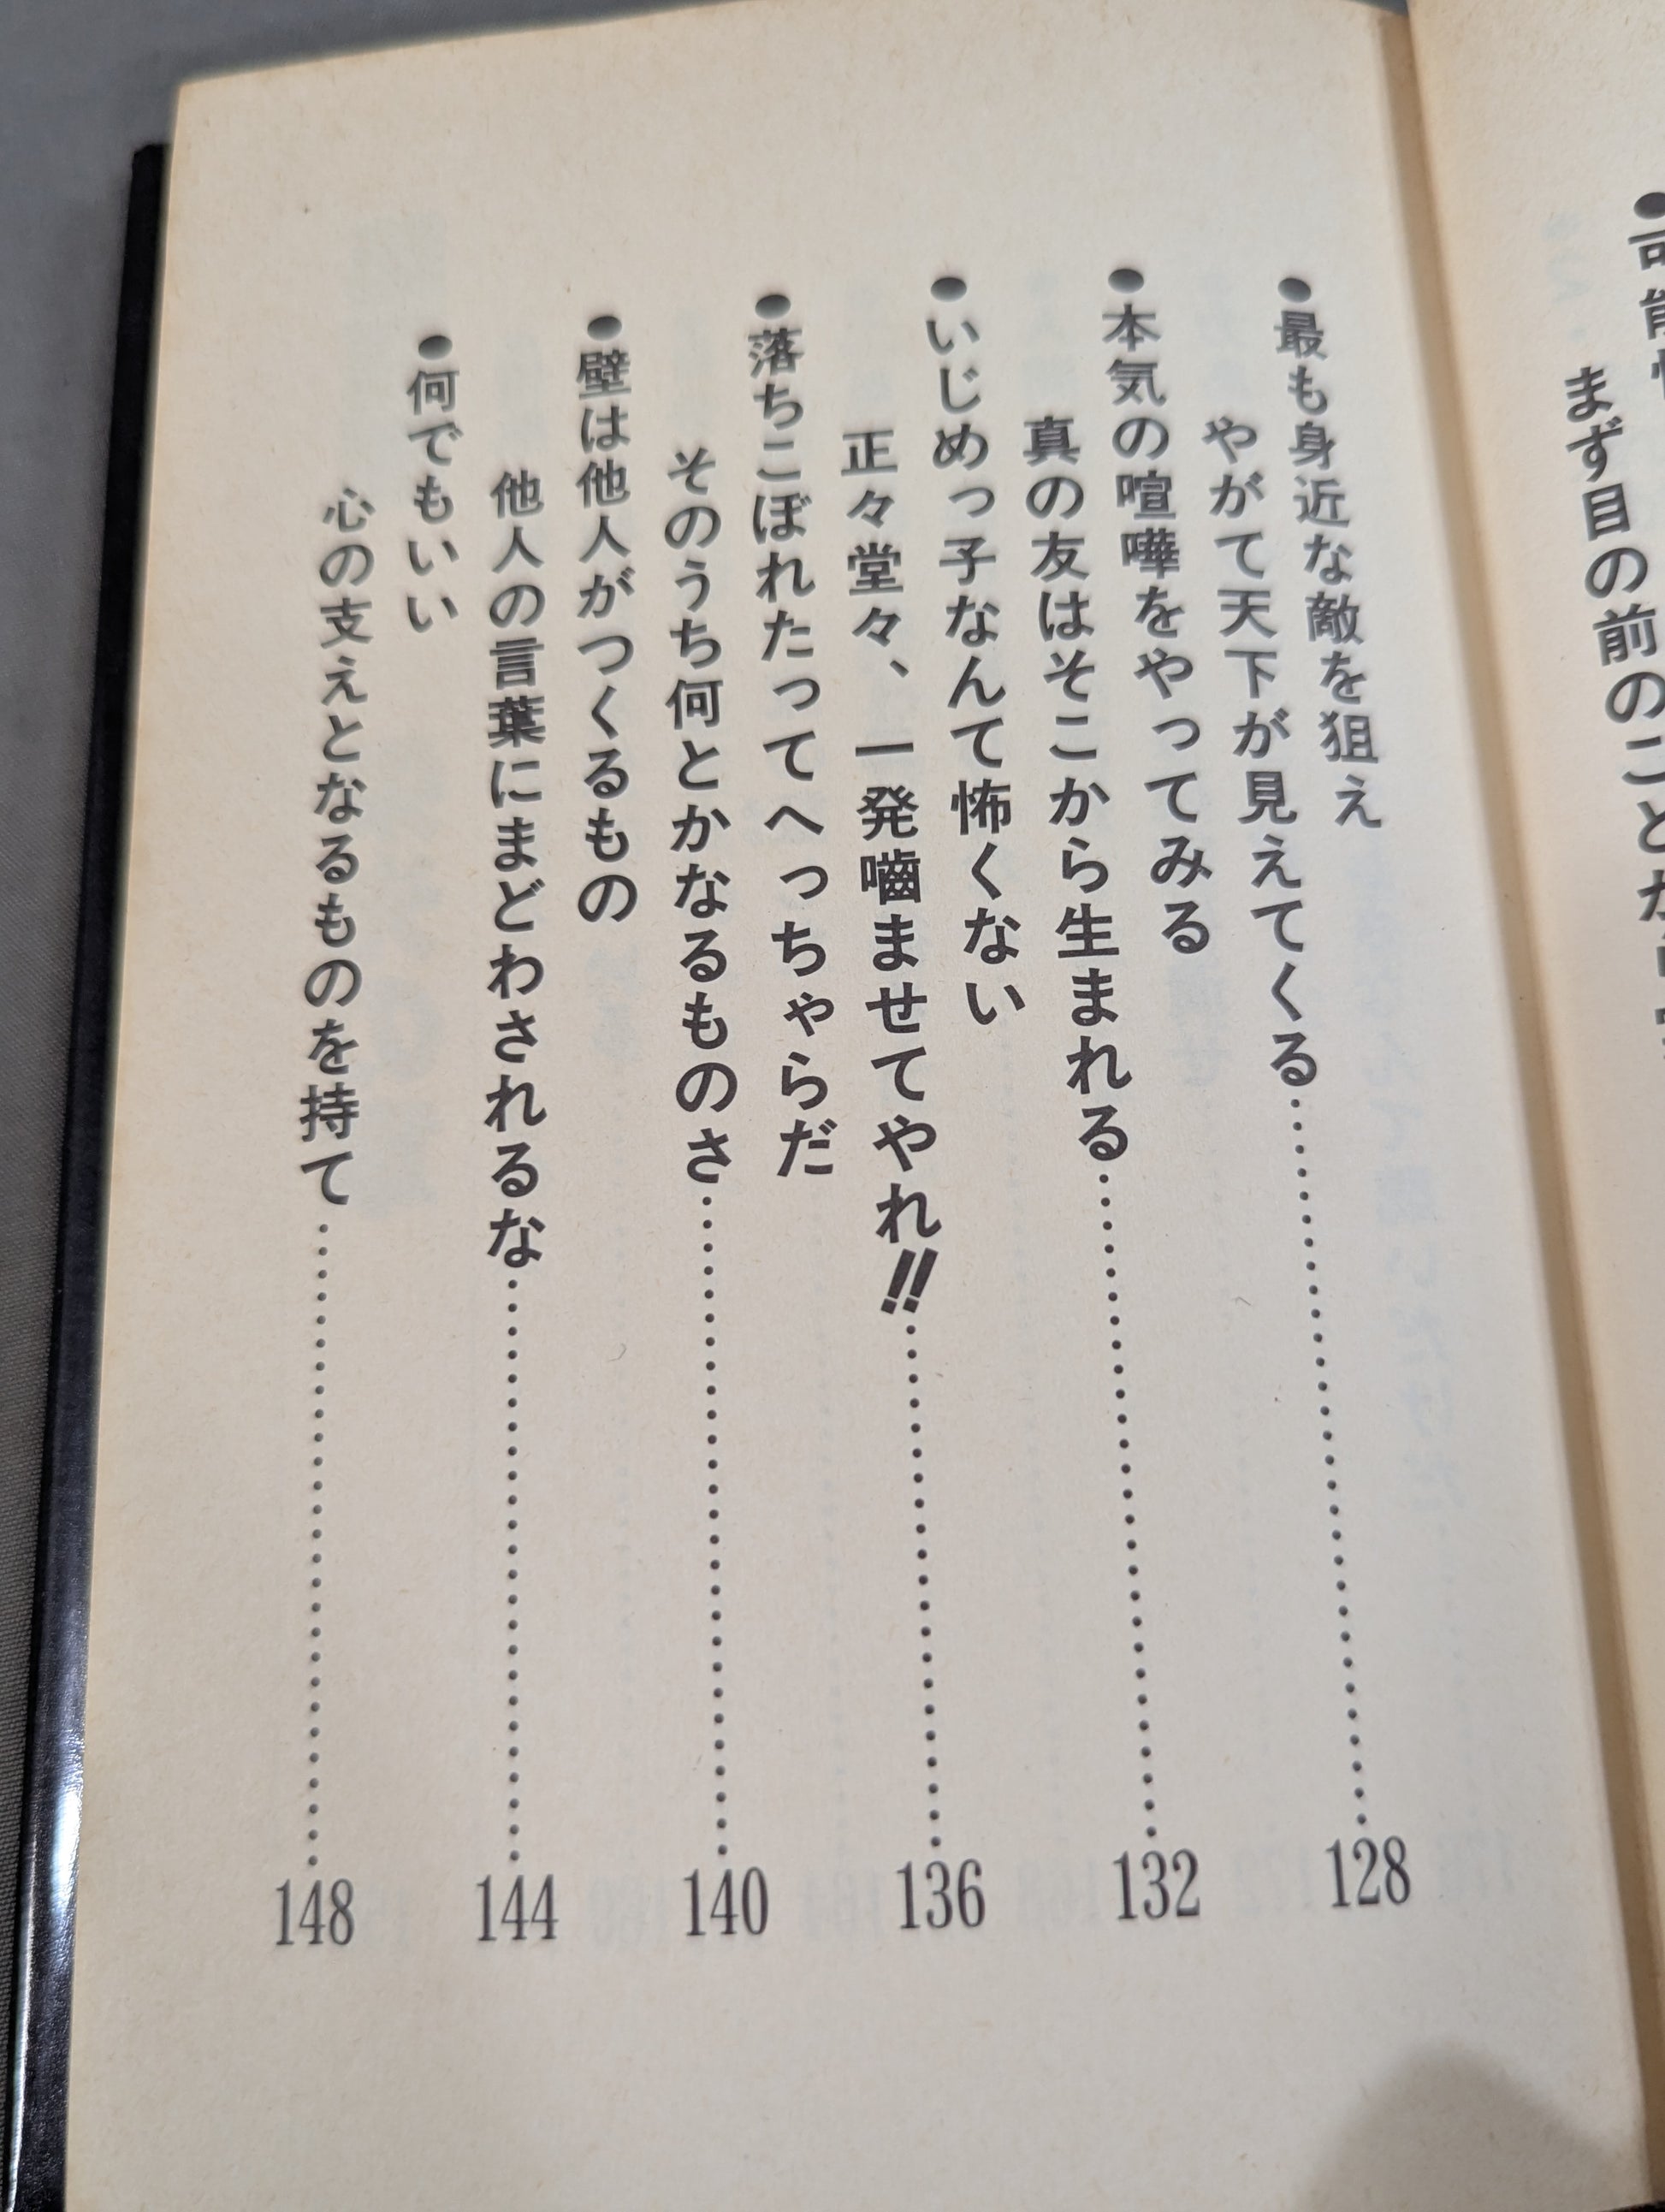 まず目の前のことか
●最も身近な敵を狙え
やがて天下が見えてくる……………………………128
●本気の喧嘩をやってみる
真の友はそこから生まれる……………………………132
●いじめっ子なんて怖くない
正々堂々、一発嚙ませてやれ!!……………………………136
●落ちこぼれたってへっちゃらだ
そのうち何とかなるものさ……………………………140
●壁は他人がつくるもの
他人の言葉にまどわされるな……………………………144
●何でもいい
心の支えとなるものを持て……………………………148